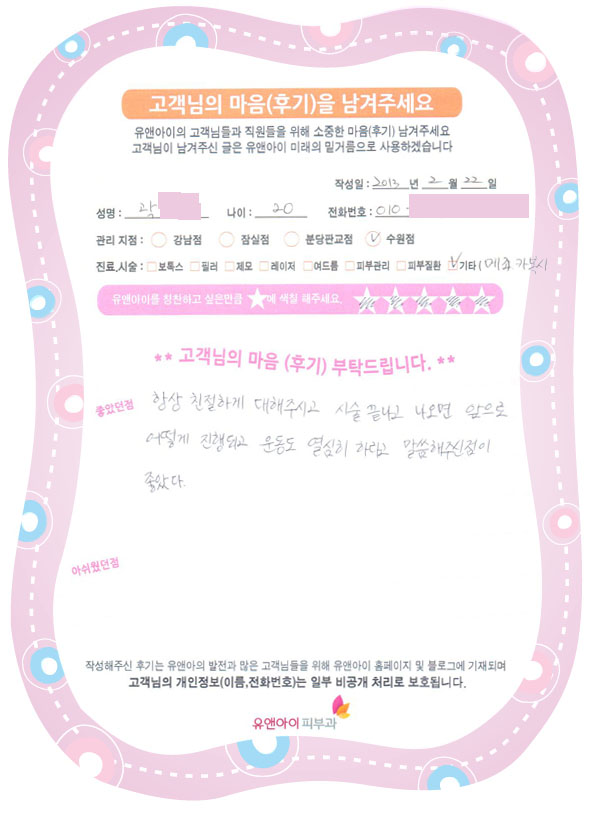 고객님의 마음(후기)을 남겨주세요
유앤아이의 고객님들과 직원들을 위해 소중한 마음(후기) 남겨주세요
고객님이 남겨주신 글은 유앤아이 미래의 밑거름으로 사용하겠습니다
작성일 : 2013 년 2 월 22 일
성명 : 곽 나이 : 20 전화번호 : 010 -
관리 지점 : 강남점 잠실점 분당판교점 수원점
진료,시술 : 보톡스 필러 제모 레이저 여드름 피부관리 피부질환 기타 ( 메조 카복시
유앤아이를 칭찬하고 싶은만큼 ★에 색칠 해주세요.
** 고객님의 마음 (후기) 부탁드립니다. **
좋았던점 항상 친절하게 대해주시고 시술 끝나고 나오면 앞으로
어떻게 진행되고 운동도 열심히 하라고 말씀해주신점이
좋았다.
아쉬웠던점
작성해주신 후기는 유앤아의 발전과 많은 고객님들을 위해 유앤아이 홈페이지 및 블로그에 기재되며
고객님의 개인정보(이름,전화번호)는 일부 비공개 처리로 보호됩니다.
유앤아이 피부과